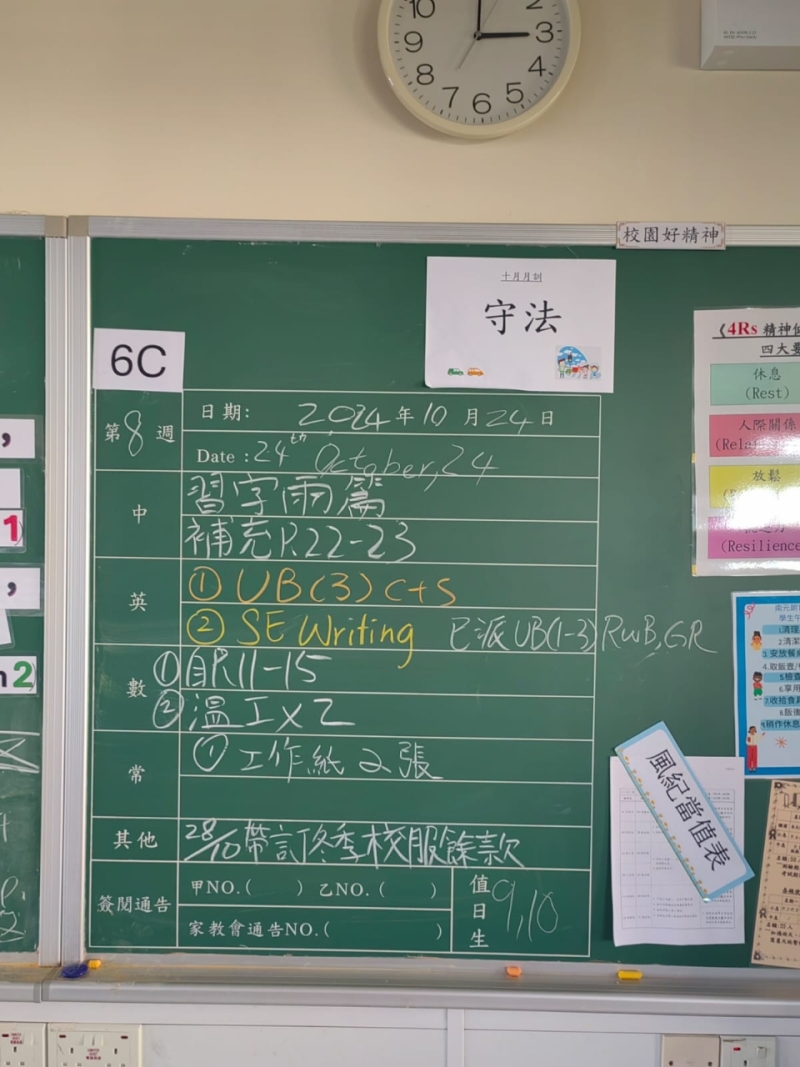 10
2
9
3
8
4
7
6
5
校園好精神
十月月訓
守法
6C
《4Rs 精神
四大要
休息
(Rest)
人際關係
放鬆
(Resilience
第8週
日期: 2024年10月24日
Date : 24th October, 24
中
習字雨篇
補充P.22-23
英
① UB(3) C+S
② SE Writing 已派UB(1-3) RWB, GR
數
① 自P.11-15
② 溫工x2
常
① 工作紙2張
其他
28/10帶訂冬季校服餘款
簽閱通告
甲NO.( ) 乙NO.( )
家教會通告NO.( )
值日生
9,10
風紀當值表
,
1
,
n2